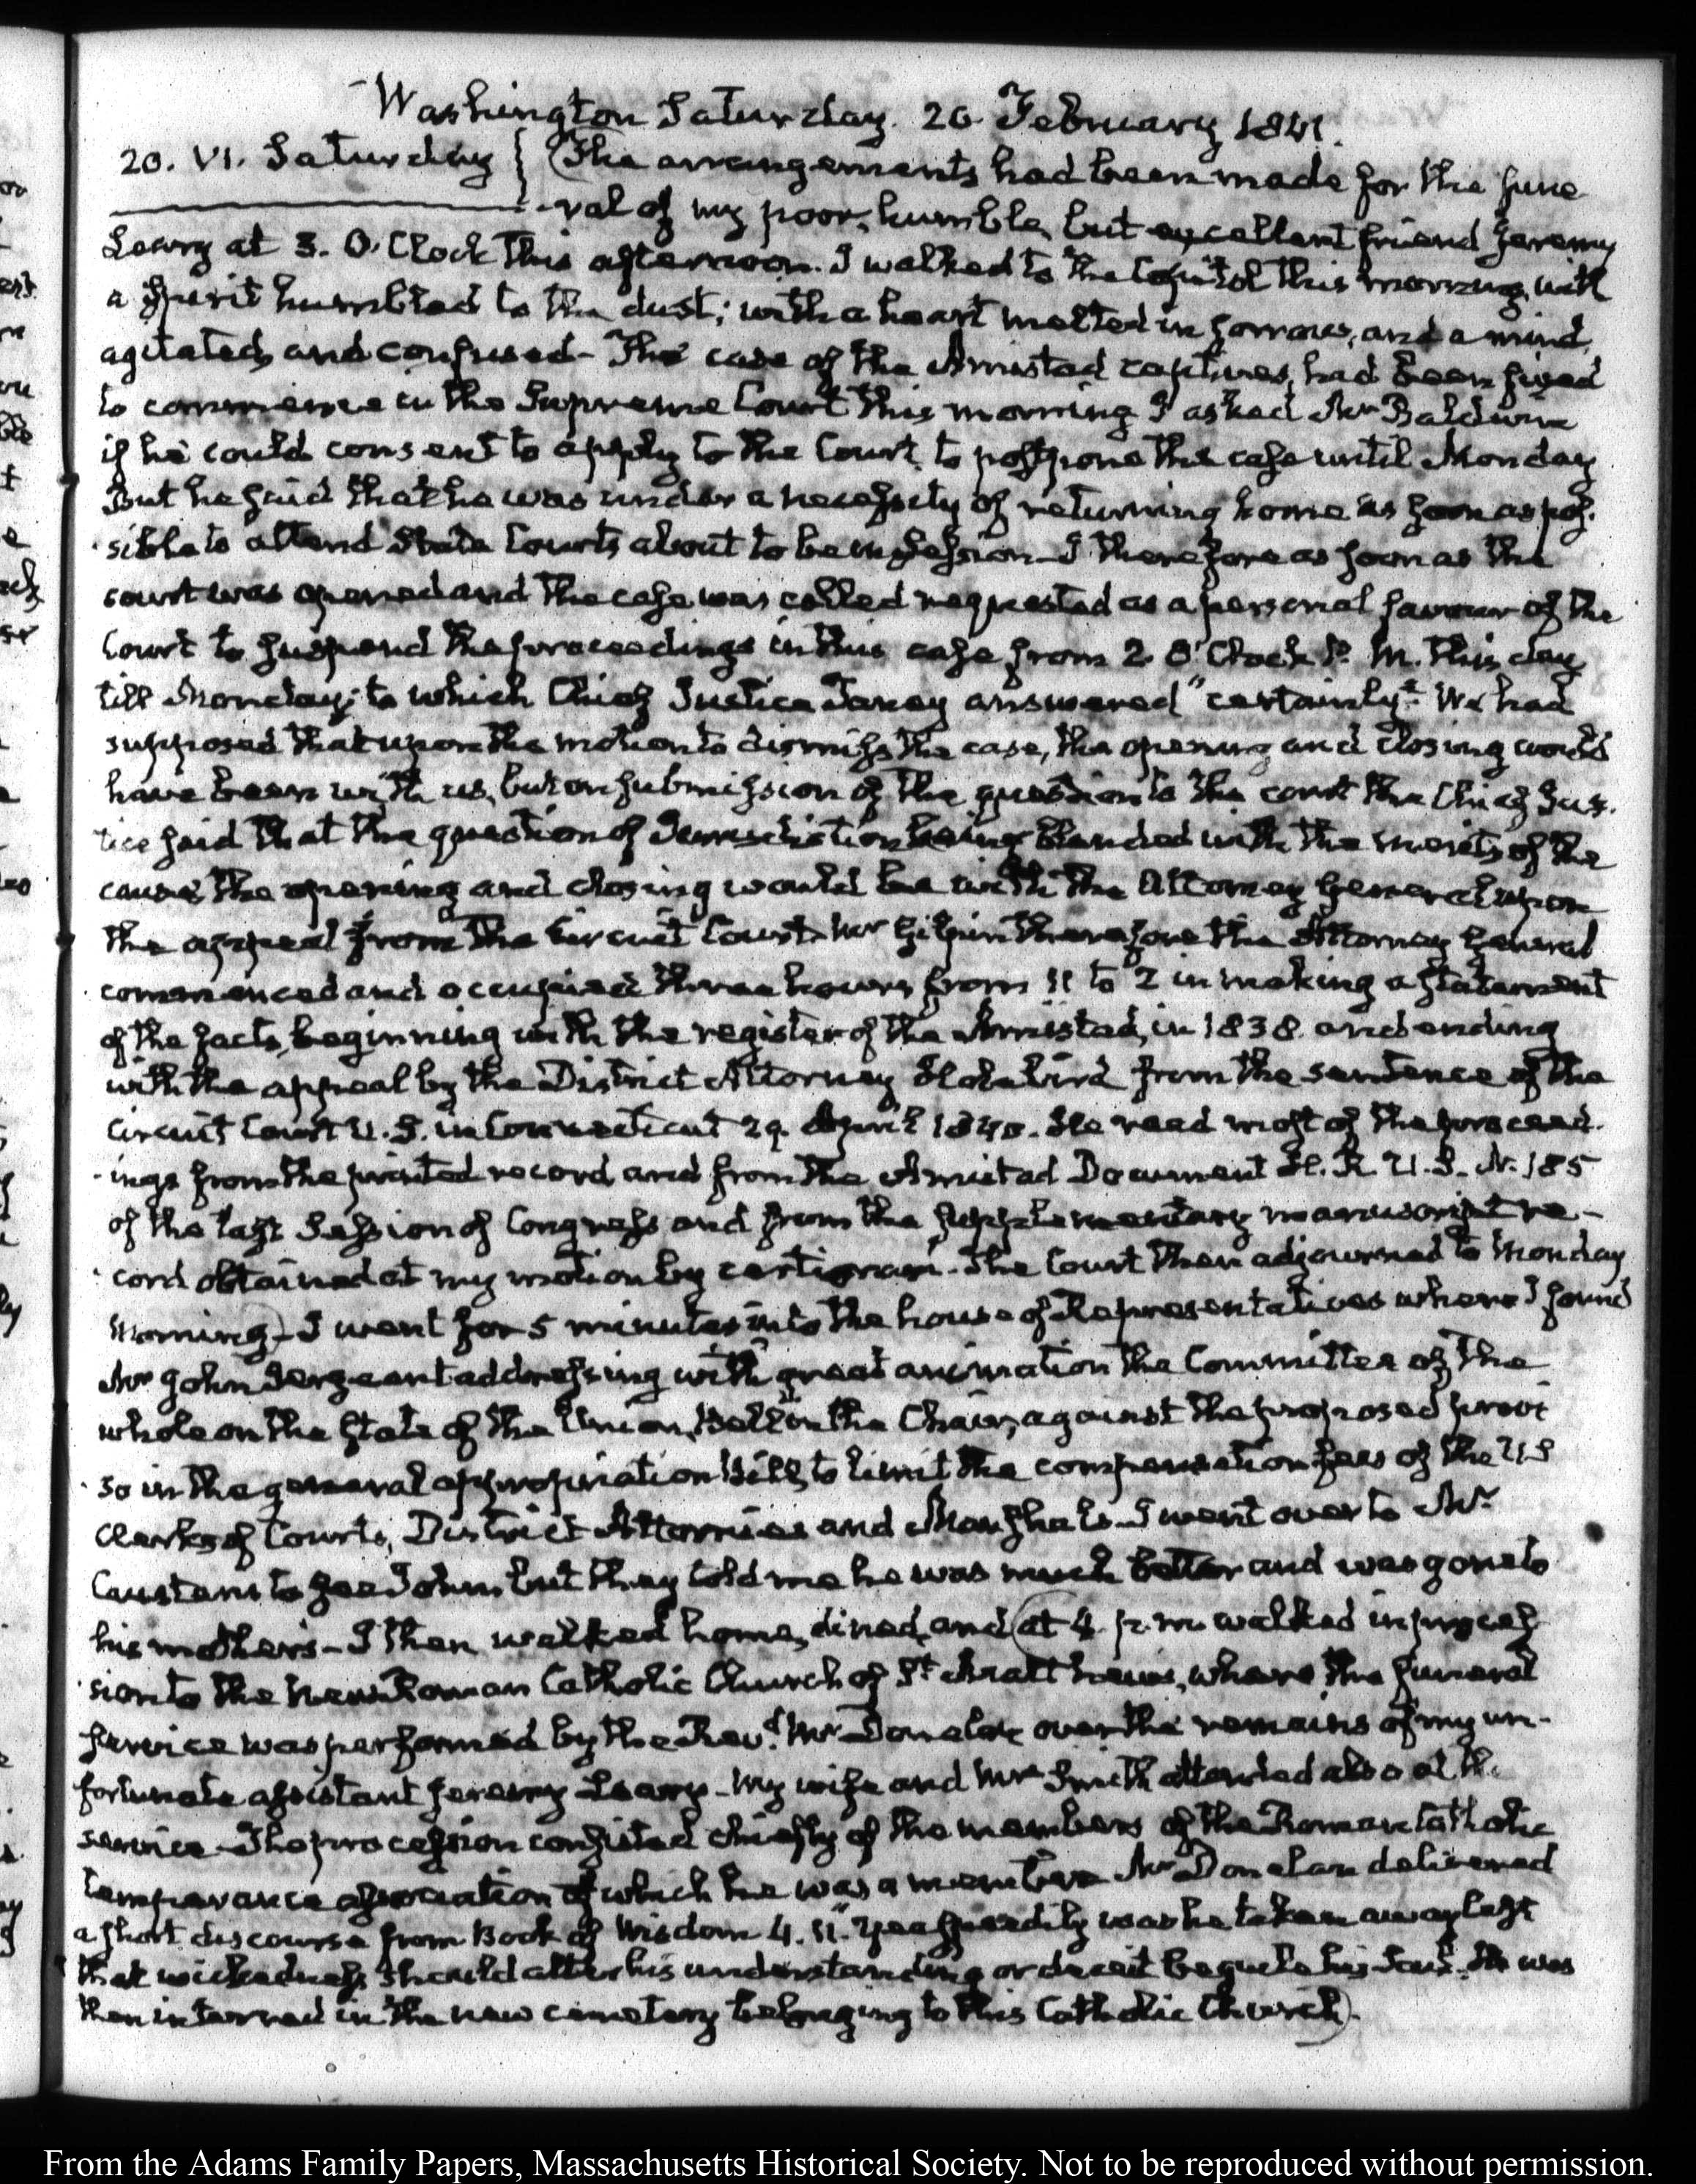 Washington Saturday. 20. February 1841.
20. VI. Saturday { (The arrangements had been made for the fune
-ral of my poor, humble, but excellent friend Jeremy
Leary at 3. O'Clock this afternoon. I walked to the Capitol this morning with
a spirit humbled to the dust; with a heart melted in sorrow, and a mind
agitated, and confused - The case of the Amistad captives, had been fixed
to commence in the Supreme Court this morning I asked Mr Baldwin
if he could consent to apply to the Court, to postpone the case until Monday
But he said that he was under a necessity of returning home as soon as pos-
-sible to attend State Courts about to be in Session - I therefore as soon as the
court was opened and the case was called requested as a personal favour of the
Court to suspend the proceedings in this case from 2 O'Clock P. M. this day
till Monday; to which Chief Justice Taney answered "certainly" We had
supposed that upon the motion to dismiss the case, the opening and closing would
have been with us, but on submission of the question to the court the Chief Jus-
tice said that the question of Jurisdiction being blended with the merits of the
cause, the opening and closing would be with the Attorney General upon
the appeal from the Circuit Court. Mr Gilpin therefore the Attorney General
commenced and occupied three hours from 11 to 2 in making a statement
of the facts, beginning with the register of the Amistad, in 1838. and ending
with the appeal by the District Attorney Holabird from the sentence of the
Circuit Court U.S. in Connecticut 29. April 1840. He read most of the proceed-
-ings from the printed record and from the Amistad Document H. R. U. S. N. 185
of the last Session of Congress and from the supplementary manuscript re-
-cord obtained at my motion by certiorari. The Court then adjourned to Monday
Morning) - I went for 5 minutes into the house of Representatives where I found
Mr John Sergeant addressing with great animation the Committee of the
whole on the State of the Union, Bell in the Chair, against the proposed provi
-so in the general appropriation Bill, to limit the compensation fees of the U S
Clerks of Courts, District Attornies and Marshals. I went over to Mr
Causten's to see John but they told me he was much better and was gone to
his mother's - I then walked home, dined, and (at 4. p.m. walked in proces-
-sion to the new Roman Catholic Church of St Matthew's, where the funeral
service was performed by the Revd Mr Donelan over the remains of my un-
fortunate assistant Jeremy Leary - My wife and Mrs Smith attended also at the
service - The procession consisted chiefly of the members of the Roman Catholic
temperance association of which he was a member Mr Donelan delivered
a short discourse from Book of Wisdom 4. 11. "Yea speedily was he taken away lest
that wickedness should alter his understanding or deceit beguile his soul. He was
then interred in the new cemetery belonging to this Catholic Church).
From the Adams Family Papers, Massachusetts Historical Society. Not to be reproduced without permission.